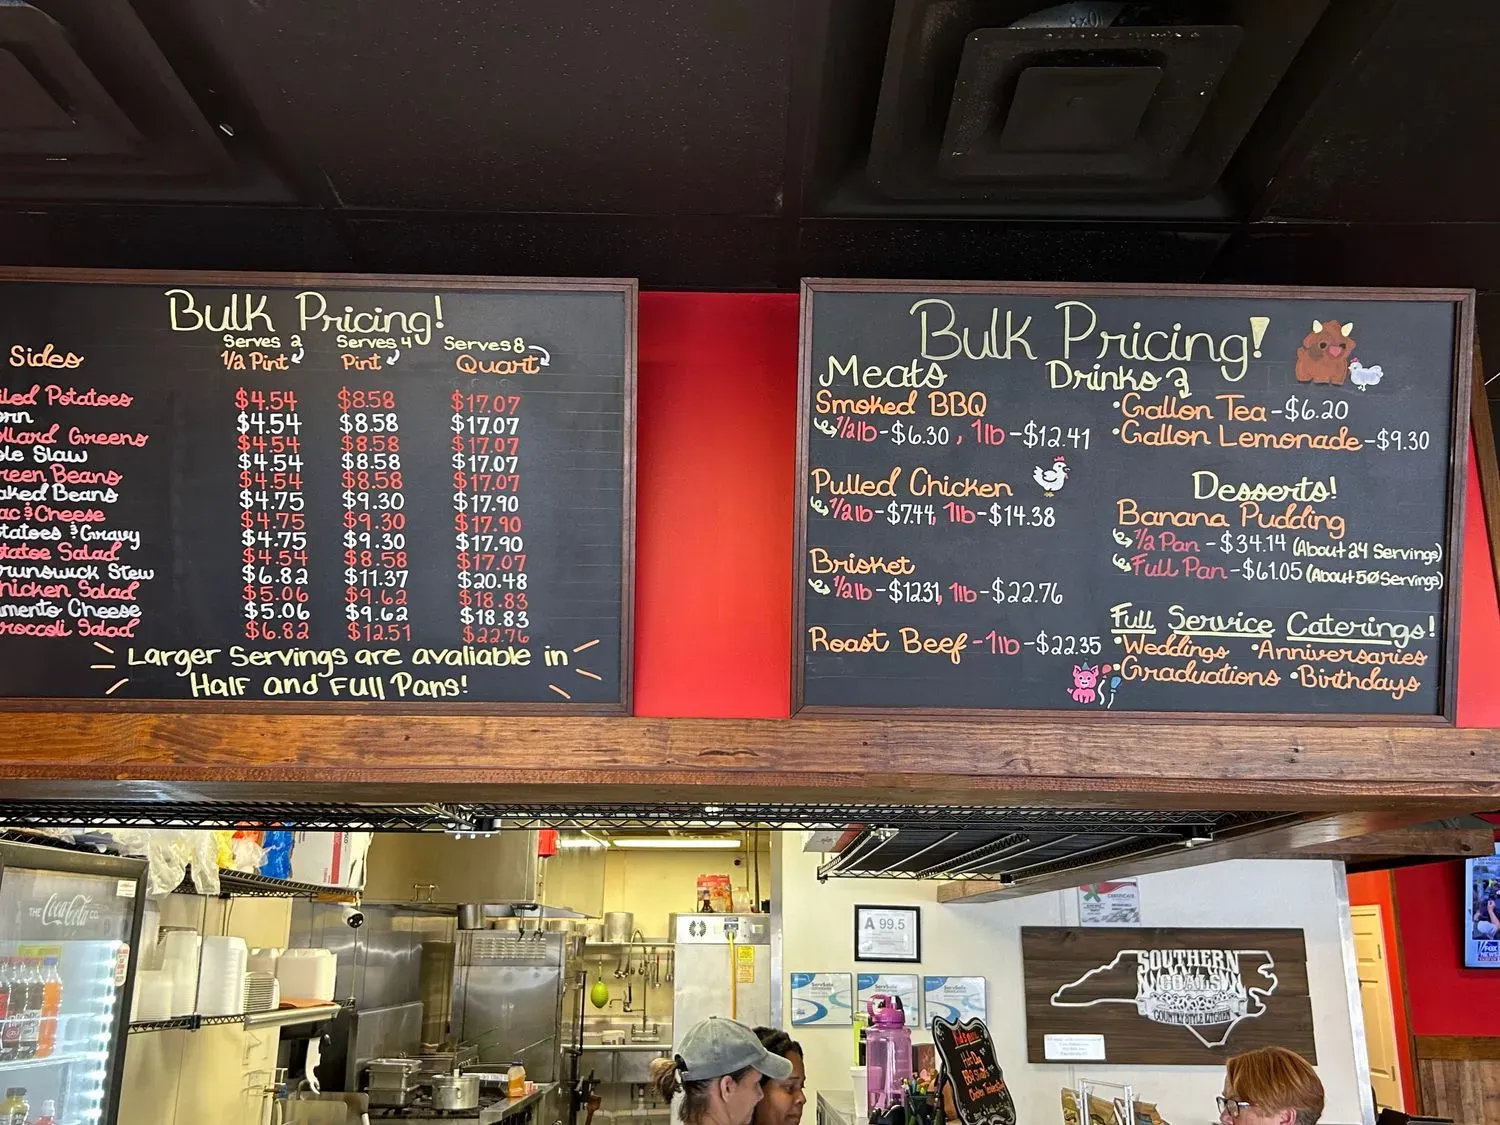 Bulk Pricing!
Sides
Serves 2
1/2 Pint
Serves 4
Pint
Serves 8
Quart
iled Potatoes $4.54 $8.58 $17.07
orn $4.54 $8.58 $17.07
ollard Greens $4.54 $8.58 $17.07
ole Slaw $4.54 $8.58 $17.07
reen Beans $4.54 $8.58 $17.07
aked Beans $4.75 $9.30 $17.90
ac & Cheese $4.75 $9.30 $17.90
otatoes & Gravy $4.75 $9.30 $17.90
otatoe Salad $4.54 $8.58 $17.07
runswick Stew $6.82 $11.37 $20.48
hicken Salad $5.06 $9.62 $18.83
imento Cheese $5.06 $9.62 $18.83
roccoli Salad $6.82 $12.51 $22.76
Larger Servings are avaliable in
Half and Full Pans!
Bulk Pricing!
Meats
Smoked BBQ
1/2lb-$6.30, 1lb-$12.41
Pulled Chicken
1/2lb-$7.44, 1lb-$14.38
Brisket
1/2lb-$12.31, 1lb-$22.76
Roast Beef-1lb-$22.35
Drinks
•Gallon Tea-$6.20
•Gallon Lemonade-$9.30
Desserts!
Banana Pudding
1/2 Pan-$34.14 (About 24 Servings)
Full Pan-$61.05 (About 50 Servings)
Full Service Caterings!
•Weddings •Anniversaries
•Graduations •Birthdays
THE Coca-Cola CO.
A 99.5
ServSafe
ServSafe
ServSafe
SOUTHERN
COALS
COUNTRY STYLE KITCHEN
FOX
NEWS